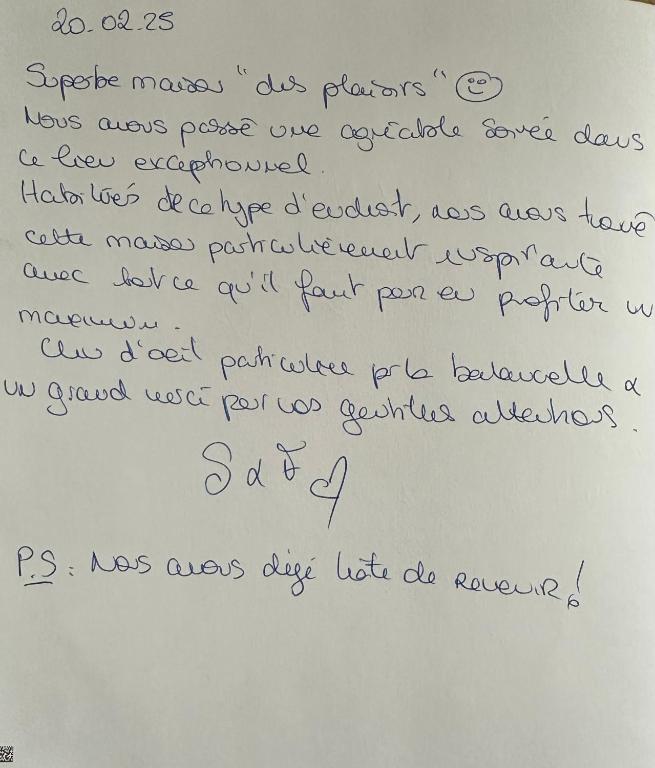 20.02.25
Superbe maison "des plaisirs"
Nous avons passé une agréable soirée dans
ce lieu exceptionnel.
Habitués de ce type d'endroit, nous avons trouvé
cette maison particulièrement inspirante
avec tout ce qu'il faut pour en profiter un
maximum.
Clin d'oeil particulier pr la balancelle &
un grand merci pour vos gentilles attentions.
S & F
P.S : Nous avons déjé hâte de REVENIR !